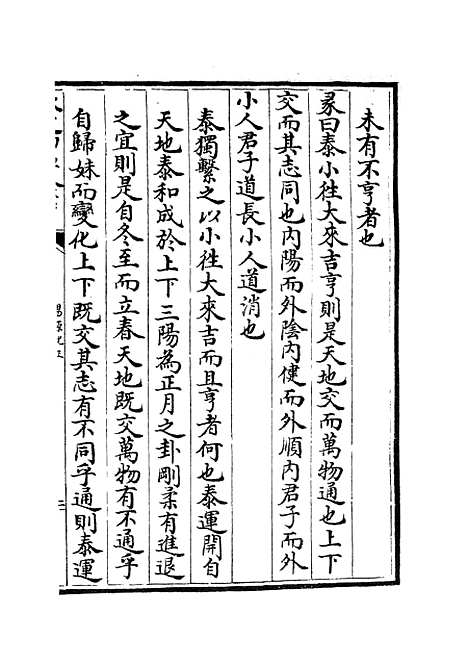 未有不亨者也
彖曰泰小往大來吉亨則是天地交而萬物通也上下
交而其志同也内陽而外陰内健而外順内君子而外
小人君子道長小人道消也
泰獨繫之以小徃大來吉而且亨者何也泰運開自
天地泰和成於上下三陽為正月之卦剛柔有進退
之宜則是自冬至而立春天地既交萬物有不通乎
自歸妹而變化上下既交其志有不同乎通則泰運